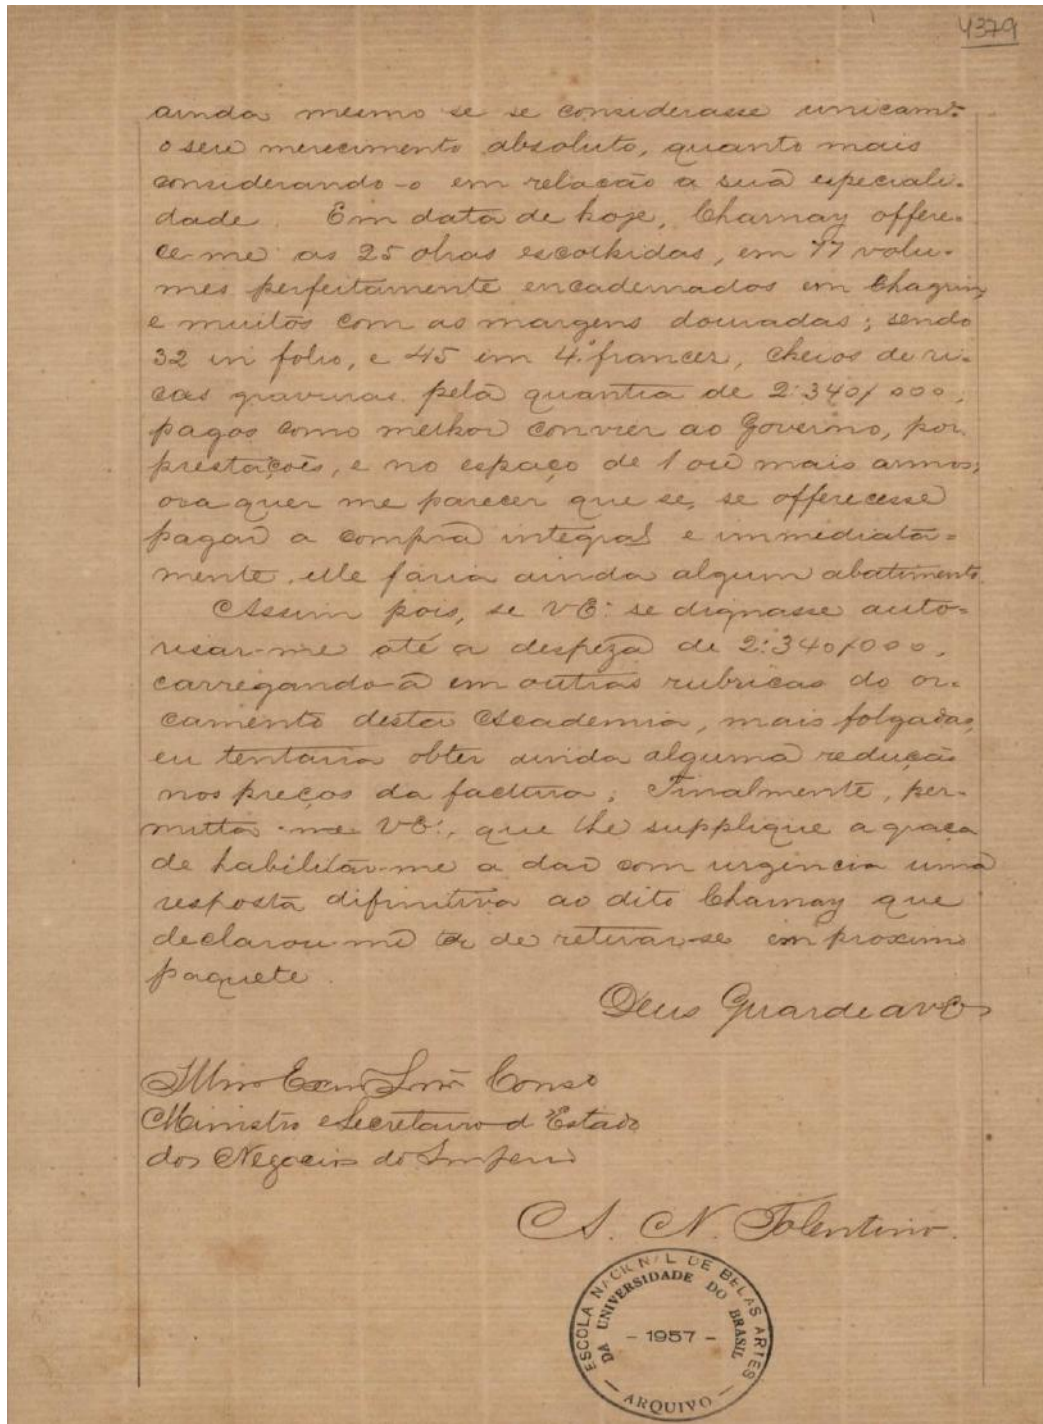 4379
ainda mesmo se se considerasse unicamte
o seu merecimento absoluto, quanto mais
considerando-o em relação a sua especiali-
dade. Em data de hoje, Charnay offere-
ce-me as 25 obras escolhidas, em 77 volu-
mes perfeitamente encadernados em Chagrin,
e muitos com as margens douradas; sendo
32 in folio, e 45 em 4º francez, cheios de ri-
cas gravuras pela quantia de 2:340/000,
pagos como melhor convier ao Governo, por
prestações, e no espaço de 1 ou mais annos;
ora quer me parecer que se, se offerecesse
pagar a compra integral e immediata-
mente, elle faria ainda algum abatimento.
Assim pois, se VE: se dignasse auto-
risar-me até a despeza de 2:340/000,
carregando-a em outras rubricas do or-
camento desta Academia, mais folgadas,
eu tentaria obter ainda alguma redução
nos preços da factura; Finalmente, per-
mitta-me VE:, que lhe supplique a graça
de habilitar-me a dar com urgencia uma
resposta difinitiva ao dito Charnay que
declarou-me de retirar-se em proximo
paquete.
Deus Guarde a VE
Illmo Exmo Snr Conso
Ministro e Secretario d'Estado
dos Negocios do Imperio
A. N. Tolentino.
ESCOLA NACIONAL DE BELAS ARTES
DA UNIVERSIDADE DO BRASIL
- 1957 -
- ARQUIVO -